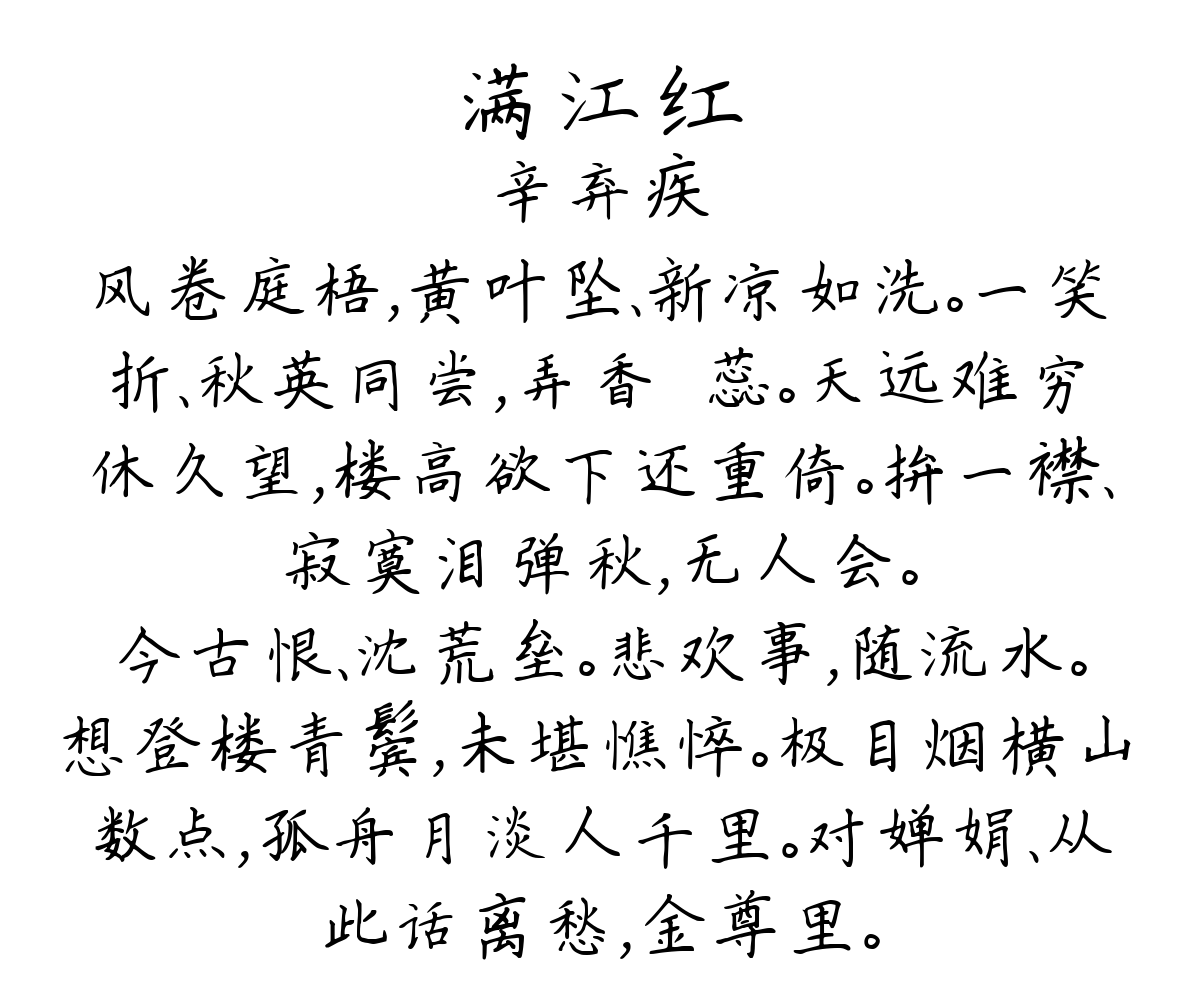 满江红
辛弃疾
风卷庭梧,黄叶坠、新凉如洗。一笑
折、秋英同尝,弄香 蕊。天远难穷
休久望,楼高欲下还重倚。拚一襟、
寂寞泪弹秋,无人会。
今古恨、沈荒垒。悲欢事,随流水。
想登楼青鬓,未堪憔悴。极目烟横山
数点,孤舟月淡人千里。对婵娟、从
此话离愁,金尊里。